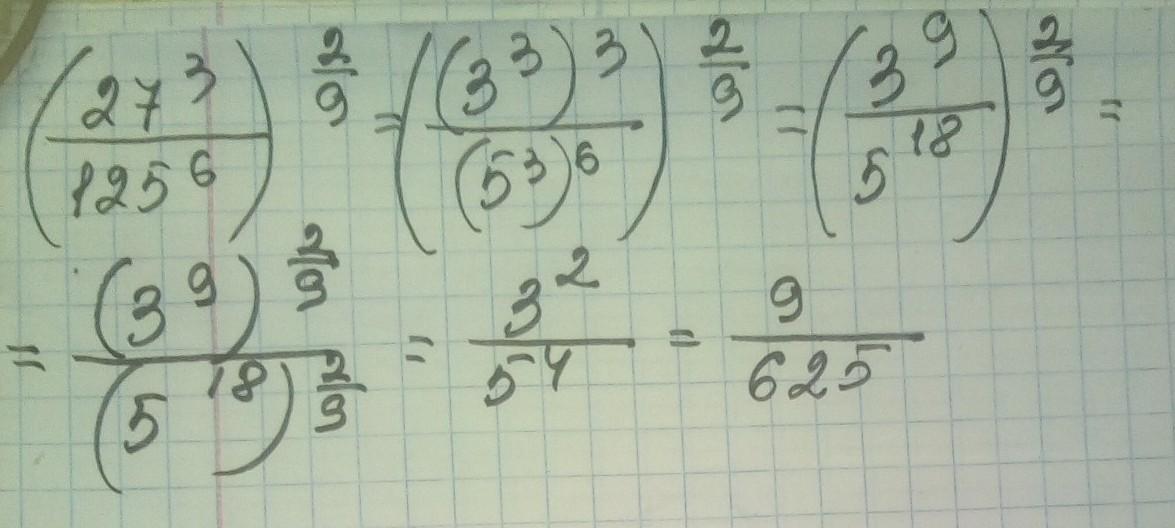 (27³/125⁶)^(2/9) = ((3³)³/(5³)⁶)^(2/9) = (3⁹/5¹⁸)^(2/9) =
= (3⁹)^(2/9)/(5¹⁸)^(2/9) = 3²/5⁴ = 9/625